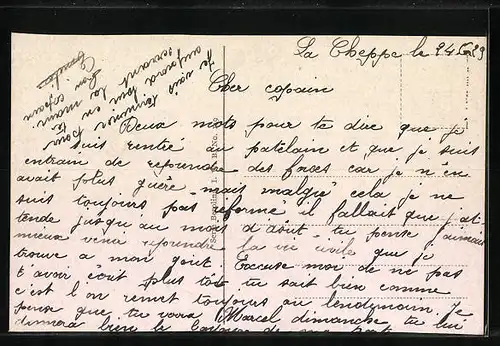 La Cheppe le 24
Cher copain
Deux mots pour te dire que je
suis rentré au patelain et que je suis
entrain de reprendre des faces car je n'en
avait plus guère mais malgié cela je ne
suit toujours pas réformé il fallait que j'at
tende jusqu au mois d'aout tu pense j'aimais
mieux venir reprendre la vie civile que je
trouve a mon goût Excuse moi de ne pas
t'avoir écrit plus tôt tu sait bien comme
c'est l'on remet toujours au lendemain Je
pense que tu voira Marcel dimanche tu lui
donnera bien le bonjour de ma part
Je vais terminer
en te serrant la main
Ton copain